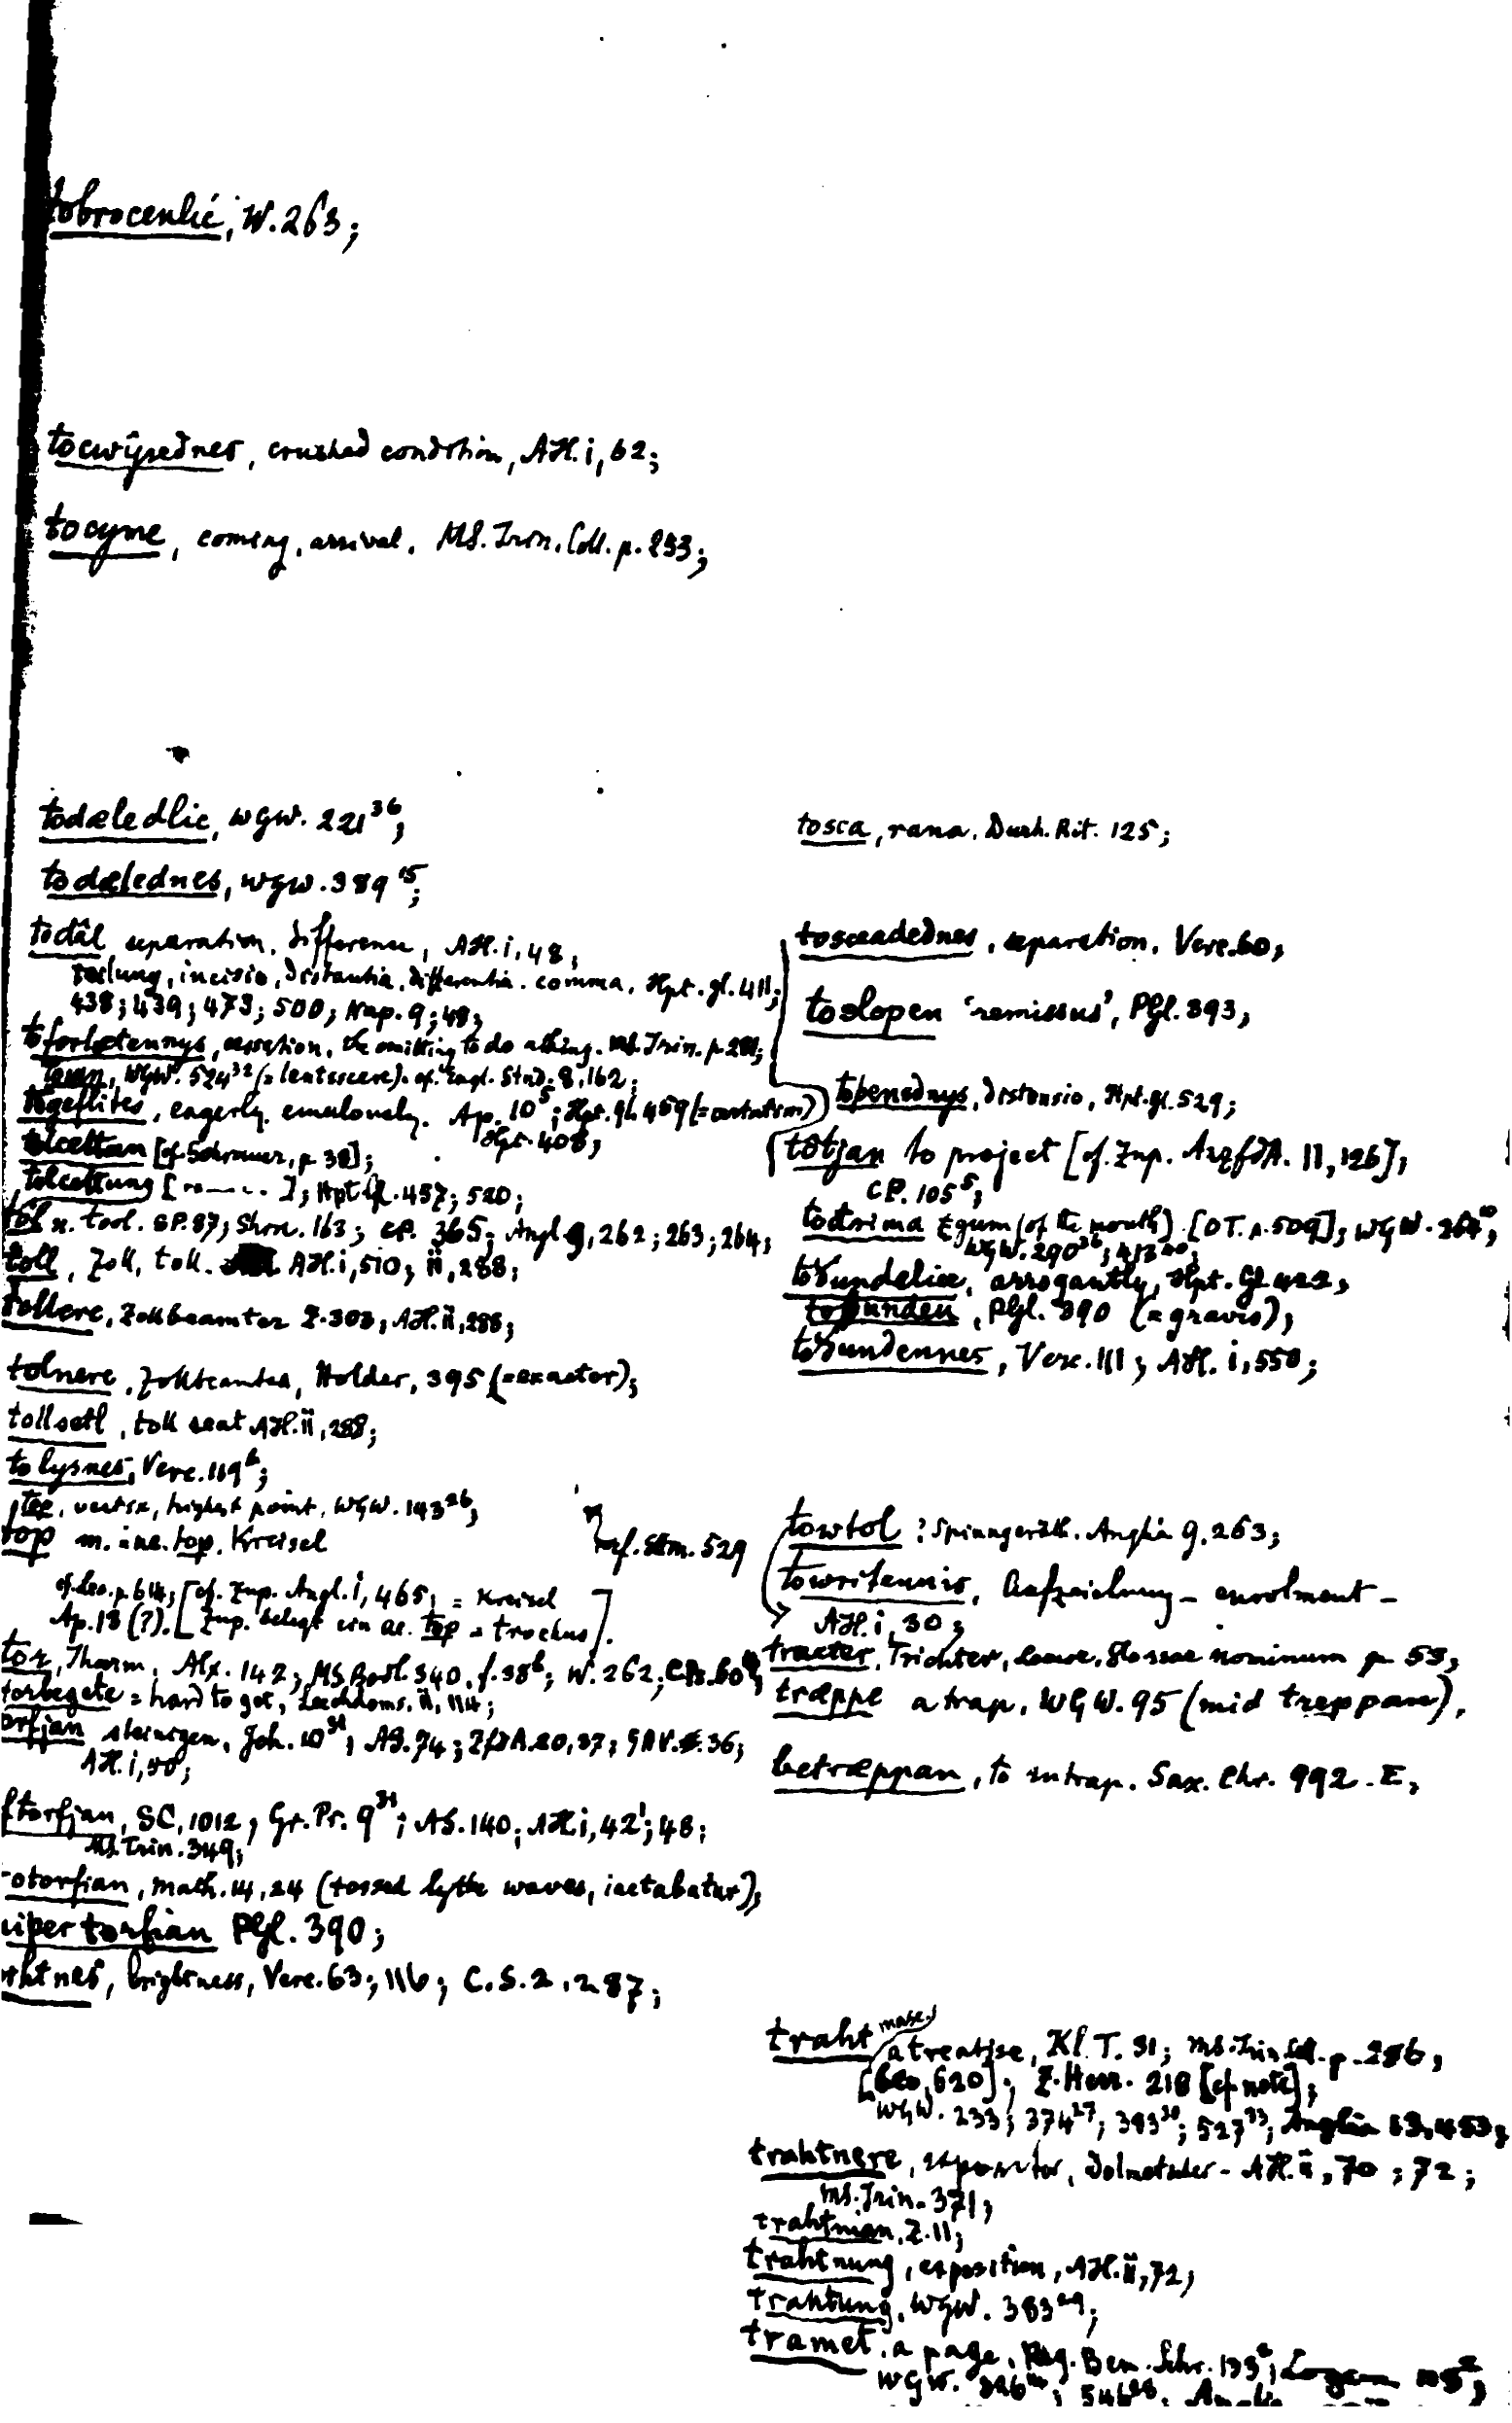 tobrocenlic, W. 263;
tocwŷsednes, crushed condition, AH. i, 62;
tocyme, coming, arrival. MS. Trin. Coll. p. 253;
todæledlic, WGW. 221³⁶;
todælednes, WGW. 389¹⁵;
todâl separation, difference, AH. i, 48;
incisio, distantia, differentia. comma, Hpt. gl. 411;
438; 439; 473; 500; Nap. 9; 48;
toforlætennys, cessation, the omitting to do a thing. MS. Trin. p.
WGW. 524³² (= lentescere). cf. Engl. Stud. 8, 162;
togeflites, eagerly, emulously. Ap. 10⁵; Hpt. gl. 459 (= certatim)
Hpt. 408;
tolcettan [cf. Schrauer, p. 38];
tolcettung [" — " ]; Hpt. Gl. 457; 520;
tôl n. tool. BP. 87; Shrn. 163; CP. 365; Angl. 9, 262; 263; 264;
toll, Zoll, toll. AH. i, 510; ii, 288;
tollere, Zollbeamter Z. 303; AH. ii, 288;
tolnere, Zollbeamter, Holder, 395 (= exactor);
tollsetl, toll seat AH. ii, 288;
tolysnes, Verc. 119ᵇ;
top, vertex, highest point, WGW. 143²⁶;
top m. = ne. top, Kreisel
cf. Stm. 529
cf. Leo. p. 614; [cf. Zup. Angl. i, 465; = Kreisel
Ap. 13 (?). [Zup. belegt ein ae. top = trochus].
tor, Thurm, Alx. 142; MS. Bodl. 340, f. 38ᵇ; W. 262; CPs. 60
torbegete = hard to get, Leechdoms, ii, 114;
torfjan steinigen, Joh. 10³¹; AS. 74; ZfdA. 20, 37; 36;
AH. i, 50;
ftorfjan, SC, 1012; Gr. Pr. 9³¹; AS. 140; AH. i, 42¹; 48;
MS. Trin. 349;
otorfian, Math. 14, 24 (tossed by the waves, iactabatur);
wiþertorfian PGl. 390;
rhtnes, brightness, Verc. 63; 116; C.S. 2, 287;
tosca, rana. Durh. Rit. 125;
tosceadednes, separation, Verc. 60;
toslopen 'remissus', PGl. 393;
toþenednys, distensio, Hpt. gl. 529;
totjan to project [cf. Zup. AnzfdA. 11, 126];
CP. 105⁵;
todrima gum (of the mouth). [OT. p. 509]; WGW. 264¹⁰;
WGW. 290²⁶; 413⁴⁰;
toðundelice, arrogantly, Hpt. Gl. 422;
toþunden, PGl. 390 (= gravis);
toðundennes, Verc. 111; AH. i, 550;
towtol ? Spinngeräth. Anglia 9, 263;
towritennis, Aufzeichnung – enrolment –
AH. i, 30;
tracter, Trichter, Loewe, Glossae nominum p. 53;
træppe a trap, WGW. 95 (mid treppan),
betræppan, to entrap. Sax. Chr. 992. E,
traht masc. a treatise, Kl. T. 31; MS. Trin. Coll. p. 286;
[Leo, 620]; Z. Herr. 218 [cf. note];
WGW. 233; 374²⁷; 393³⁰; 527³³; Anglia 13, 453;
trahtnere, expositor, Dolmetscher – AH. ii, 70; 72;
MS. Trin. 371;
trahtnian, Z. 11;
trahtnung, exposition, AH. ii, 72;
trahtung, WGW. 383²⁹;
tramet, a page, Reg. Ben. Schr. 133²;
WGW. 546²⁸;